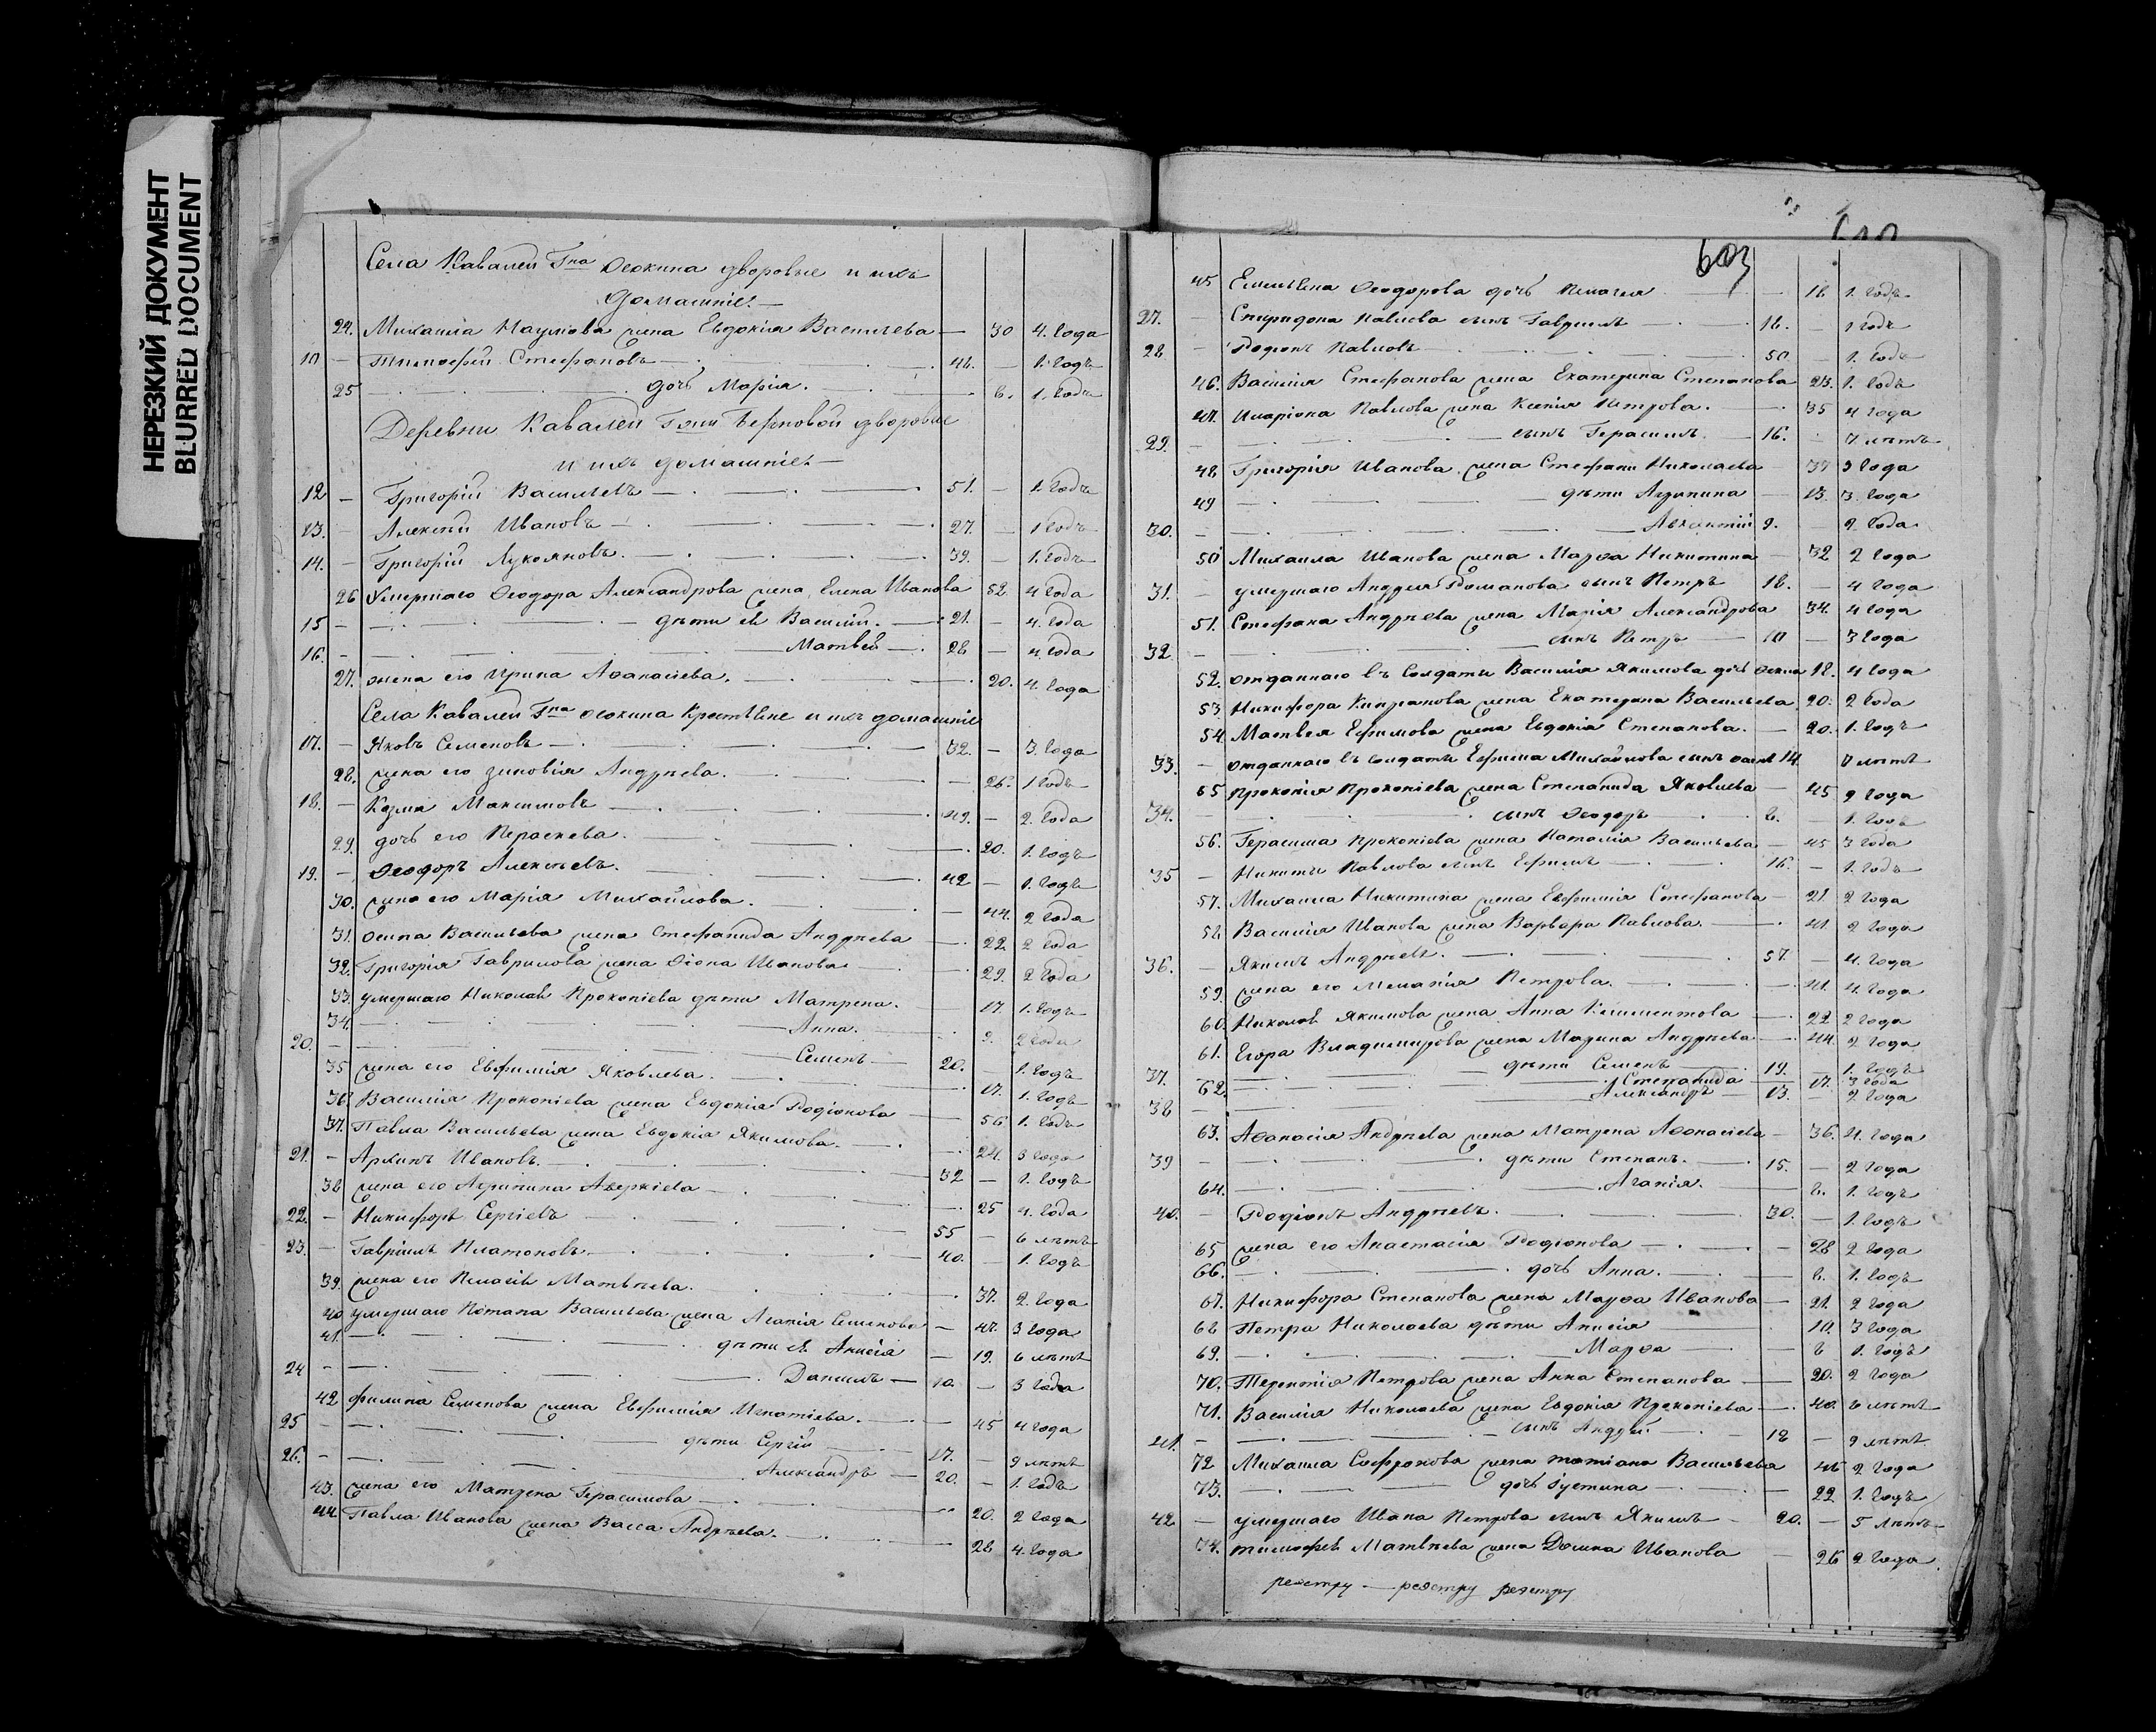 НЕРЕЗКИЙ ДОКУМЕНТ
BLURRED DOCUMENT
Села Кавалей Гна Осокина дворовые и ихъ
домашніе.
24. Михаила Наумова жена Евдокія Васильева — 30 4. года
11 — Тимофей Стефановъ — 46. — 1. годъ
25 дочь Марія. 6. 1. годъ
Деревни Кавалей Гжи дворовые
и ихъ домашніе. —
12 — Григорій Васильевъ — 51. — 1. годъ
13. — Алексѣй Ивановъ — 27. — 1 годъ
14. — Григорій Лукояновъ. — 39. — 1. годъ
26 Умершаго Ѳеодора Александрова жена Елена Иванова 52. 4 года
15 — дѣти ея Василій. — 21. — 4. года
16. — Матвей — 28 — 4. года
27. жена его Ирина Аѳанасіева. 20. 4. года
Села Кавалей Гна Осокина крестьяне и ихъ домашніе
17. — Яковъ Семеновъ — 32. — 3. года
28. жена его Зиновія Андреева. — 26. 1 годъ
18. — Козма Максимовъ — 49. — 2. года
29. дочь его Параскева. — 20. 1. годъ
19. — Ѳеодоръ Алексѣевъ. 42 — 1. годъ
30. жена его Марія Михайлова. — 44. 2 года
31. Осипа Васильева жена Стефанида Андреева — 22 2 года
32. Григорія Гаврилова жена Ѳіона Иванова. 29. 2 года
33. умершаго Николая Прокопіева дѣти Матрена. 17. 1. годъ
34. — Анна. 9. 2 года
20. — Семенъ — 20. — 1. годъ
35 жена его Евфимія Яковлева. — 17. 1. годъ
36. Василія Прокопіева жена Евдокія Родіонова — 56 1. годъ
37. Павла Васильева жена Евдокія Якимова. — 24. 3 года
21. — Архипъ Ивановъ. — 32 — 1. годъ
38 жена его Агрипина Аверкіева — 25 4. года
22. — Никифоръ Сергіевъ — 55 — 6 лѣтъ
23. — Гавріилъ Платоновъ. — 40. — 1. годъ
39. жена его Пелагія Матвѣева. — 37. 2. года
40 умершаго Потапа Васильева жена Агапія Семенова — 47. 3 года
41. — дѣти ея Анисія — 19. 6 лѣтъ
24 — Даниилъ — 10. — 3 года
42 Филипа Семенова жена Евфимія Игнатіева. — 45 4 года
25 — дѣти Сергій — 17. — 9 лѣтъ
26. — Александръ — 20. — 1. годъ
43. жена его Матрена Герасимова — 20. 2 года
44. Павла Иванова жена Васса Андреева. — 28 4. года
603
45 Емельяна Ѳеодорова дочь Пелагея — 18 1. годъ
27. — Спиридона Павлова сынъ Гавриилъ — 18. — 1 годъ
28 — Родіонъ Павловъ — 50. — 1. годъ
46. Василія Стефанова жена Екатерина Степанова 23. 1. годъ
47. Иларіона Павлова жена Ксенія Петрова. — 35 4 года
29. — сынъ Герасимъ. — 16. 7 лѣтъ
48 Григорія Иванова жена Стефани Николаева 37 3 года
49 — дѣти Агрипина — 13. 3. года
30. — 9. — 2 года
50 Михаила Иванова жена Марѳа Никитина — 32 2 года
31. — умершаго Андрея Романова сынъ Петръ 18. — 4 года
51. Стефана Андреева жена Марія Александрова 34. 4 года
32 — сынъ Петръ — 10 — 3 года
52. отданнаго въ солдаты Василія Якимова дочь 18. 4 года
53 Никифора Кипріанова жена Екатерина Васильева 20. 2 года
54 Матвея Ефимова жена Евдокія Степанова. — 20. 1. годъ
33. — отданнаго въ солдаты Ефима Михайлова сынъ 14. 7 лѣтъ
55 Прокопія Прокопіева жена Степанида Яковлева — 45 2 года
34. — сынъ Ѳеодоръ 8. — 1. годъ
56. Герасима Прокопіева жена Наталія Васильева — 45 3 года
35 — Никиты Павлова сынъ Ефимъ — 16. — 1. годъ
57. Михаила Никитина жена Евфимія Стефанова — 21. 2 года
58. Василія Иванова жена Варвара Павлова. — 41. 2 года
36. — Якимъ Андреевъ. — 57. — 4. года
59. жена его Меланія Петрова. — 41. 4. года
60. Николая Якимова жена Анна Климентова — 22 2 года
61. Егора Владимирова жена Марина Андреева — 44. 2 года
37. — дѣти Семенъ — 19. — 1. годъ
62. — Степанида — 17. 3 года
38 — Александръ — 13. — 2 года
63. Аѳанасія Андреева жена Матрена Аѳанасіева — 36. 4. года
39 — дѣти Степанъ. — 15. — 2 года
64. — Агапія. — 8. 1. годъ
40. — Родіонъ Андреевъ. — 30. — 1. годъ
65 жена его Анастасія Родіонова — 28 2 года
66. — дочь Анна. — 8. 1. годъ
67. Никифора Степанова жена Марѳа Иванова — 21. 2 года
68 Петра Николаева дѣти Анисія — 10. 3 года
69. — Марѳа — 8 1. годъ
70. Терентія Петрова жена Анна Степанова — 20. 2 года
71. Василія Николаева жена Евдокія Прокопіева — 40. 6 лѣтъ
41. — сынъ Андрей. — 12 — 9 лѣтъ
72 Михаила Софронова жена Татіана Васильева 46 2 года
73. — дочь Іустина — 22 1. годъ
42 — умершаго Ивана Петрова сынъ Якимъ — 20. — 5 лѣтъ
74. Тимофея Матвѣева жена Домна Иванова — 26 2 года
реэстру — реэстру реэстру